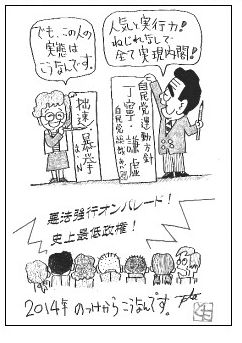 人気と実行力!
ねじれなしで
全て実現内閣!
でも、この人の
実態は
こうなんです。
自民党運動方針
丁寧・謙虚
拙速・暴挙
悪法強行オンパレード!
史上最低政権!
2014年 のっけからこうなんです。